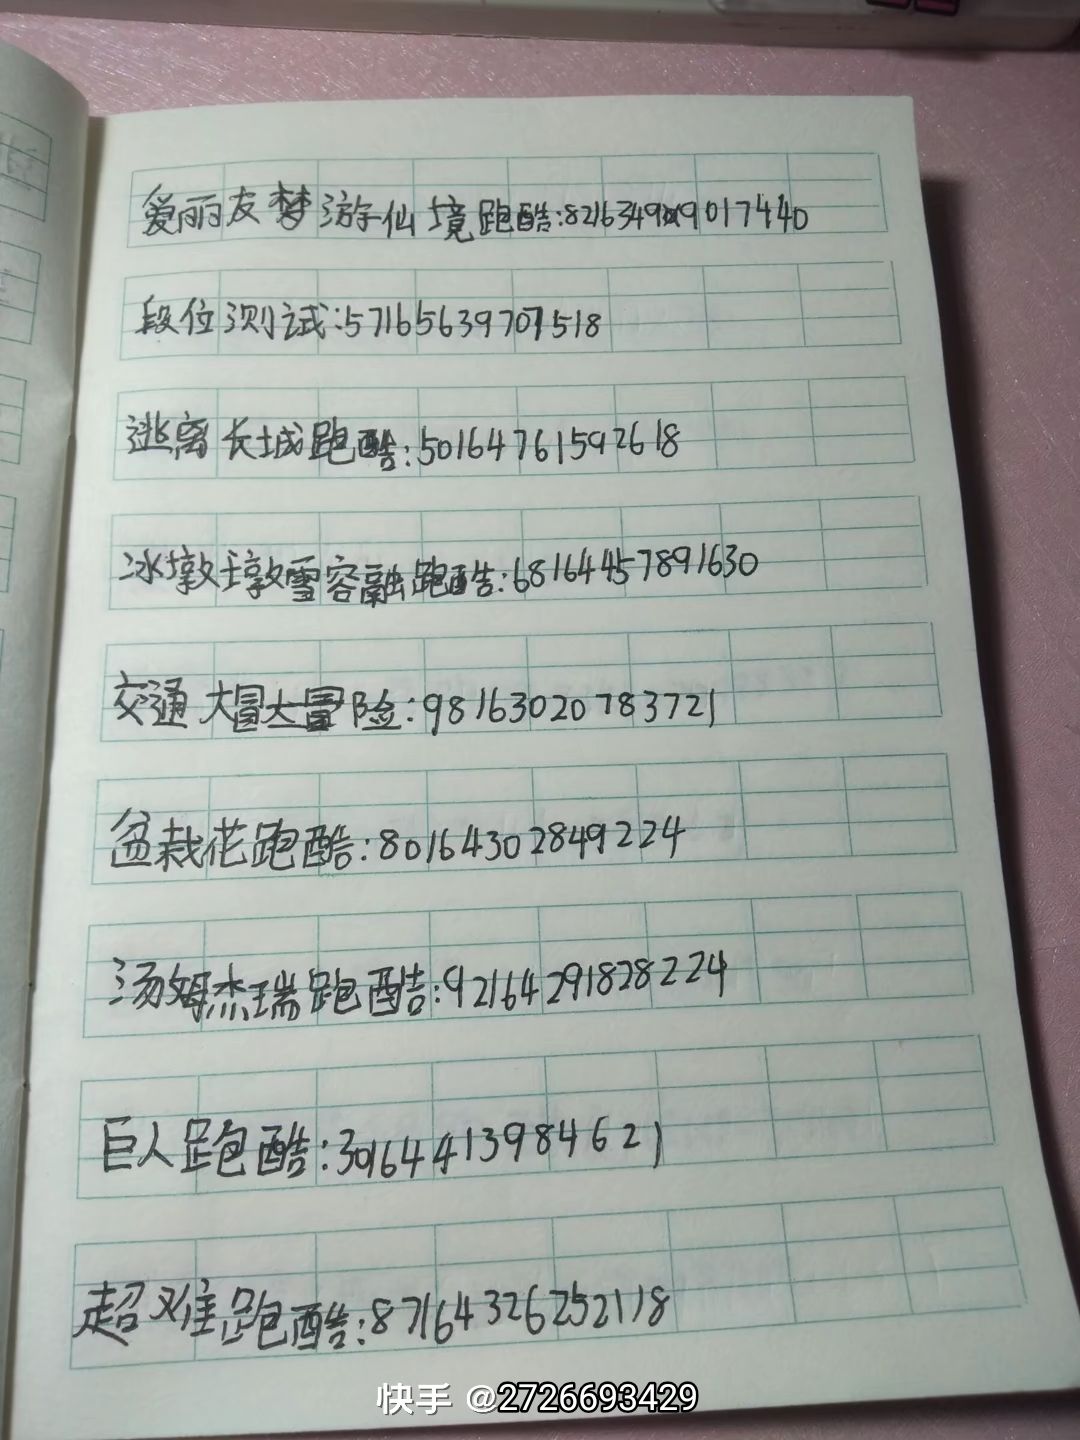 爱丽友梦游仙境跑酷:82163499017440
段位测试:57165639707518
逃离长城跑酷:50164761592618
冰墩墩雪容融跑酷:68164457891630
交通大冒大冒险:98163020783721
盆栽花跑酷:80164302849224
汤姆杰瑞跑酷:92164291828224
巨人跑酷:30164413984621
超难跑酷:87164326252118
快手 @2726693429